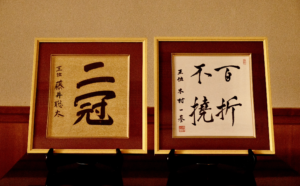 二冠
王位 藤井聡太
百折
不撓
王位 木村一基